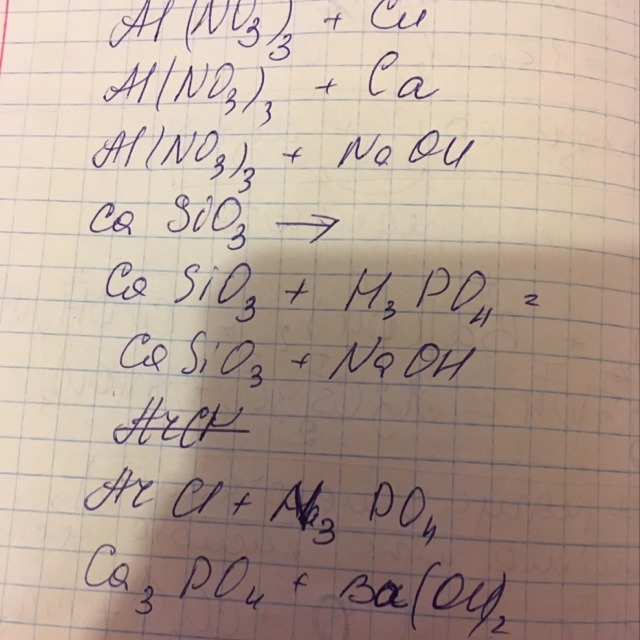 Al(NO₃)₃ + Cu
Al(NO₃)₃ + Ca
Al(NO₃)₃ + NaOH
Ca SiO₃ →
Ca SiO₃ + H₃ PO₄ =
Ca SiO₃ + NaOH
Cl + Na₃ PO₄
Ca₃ PO₄ + Ba(OH)₂